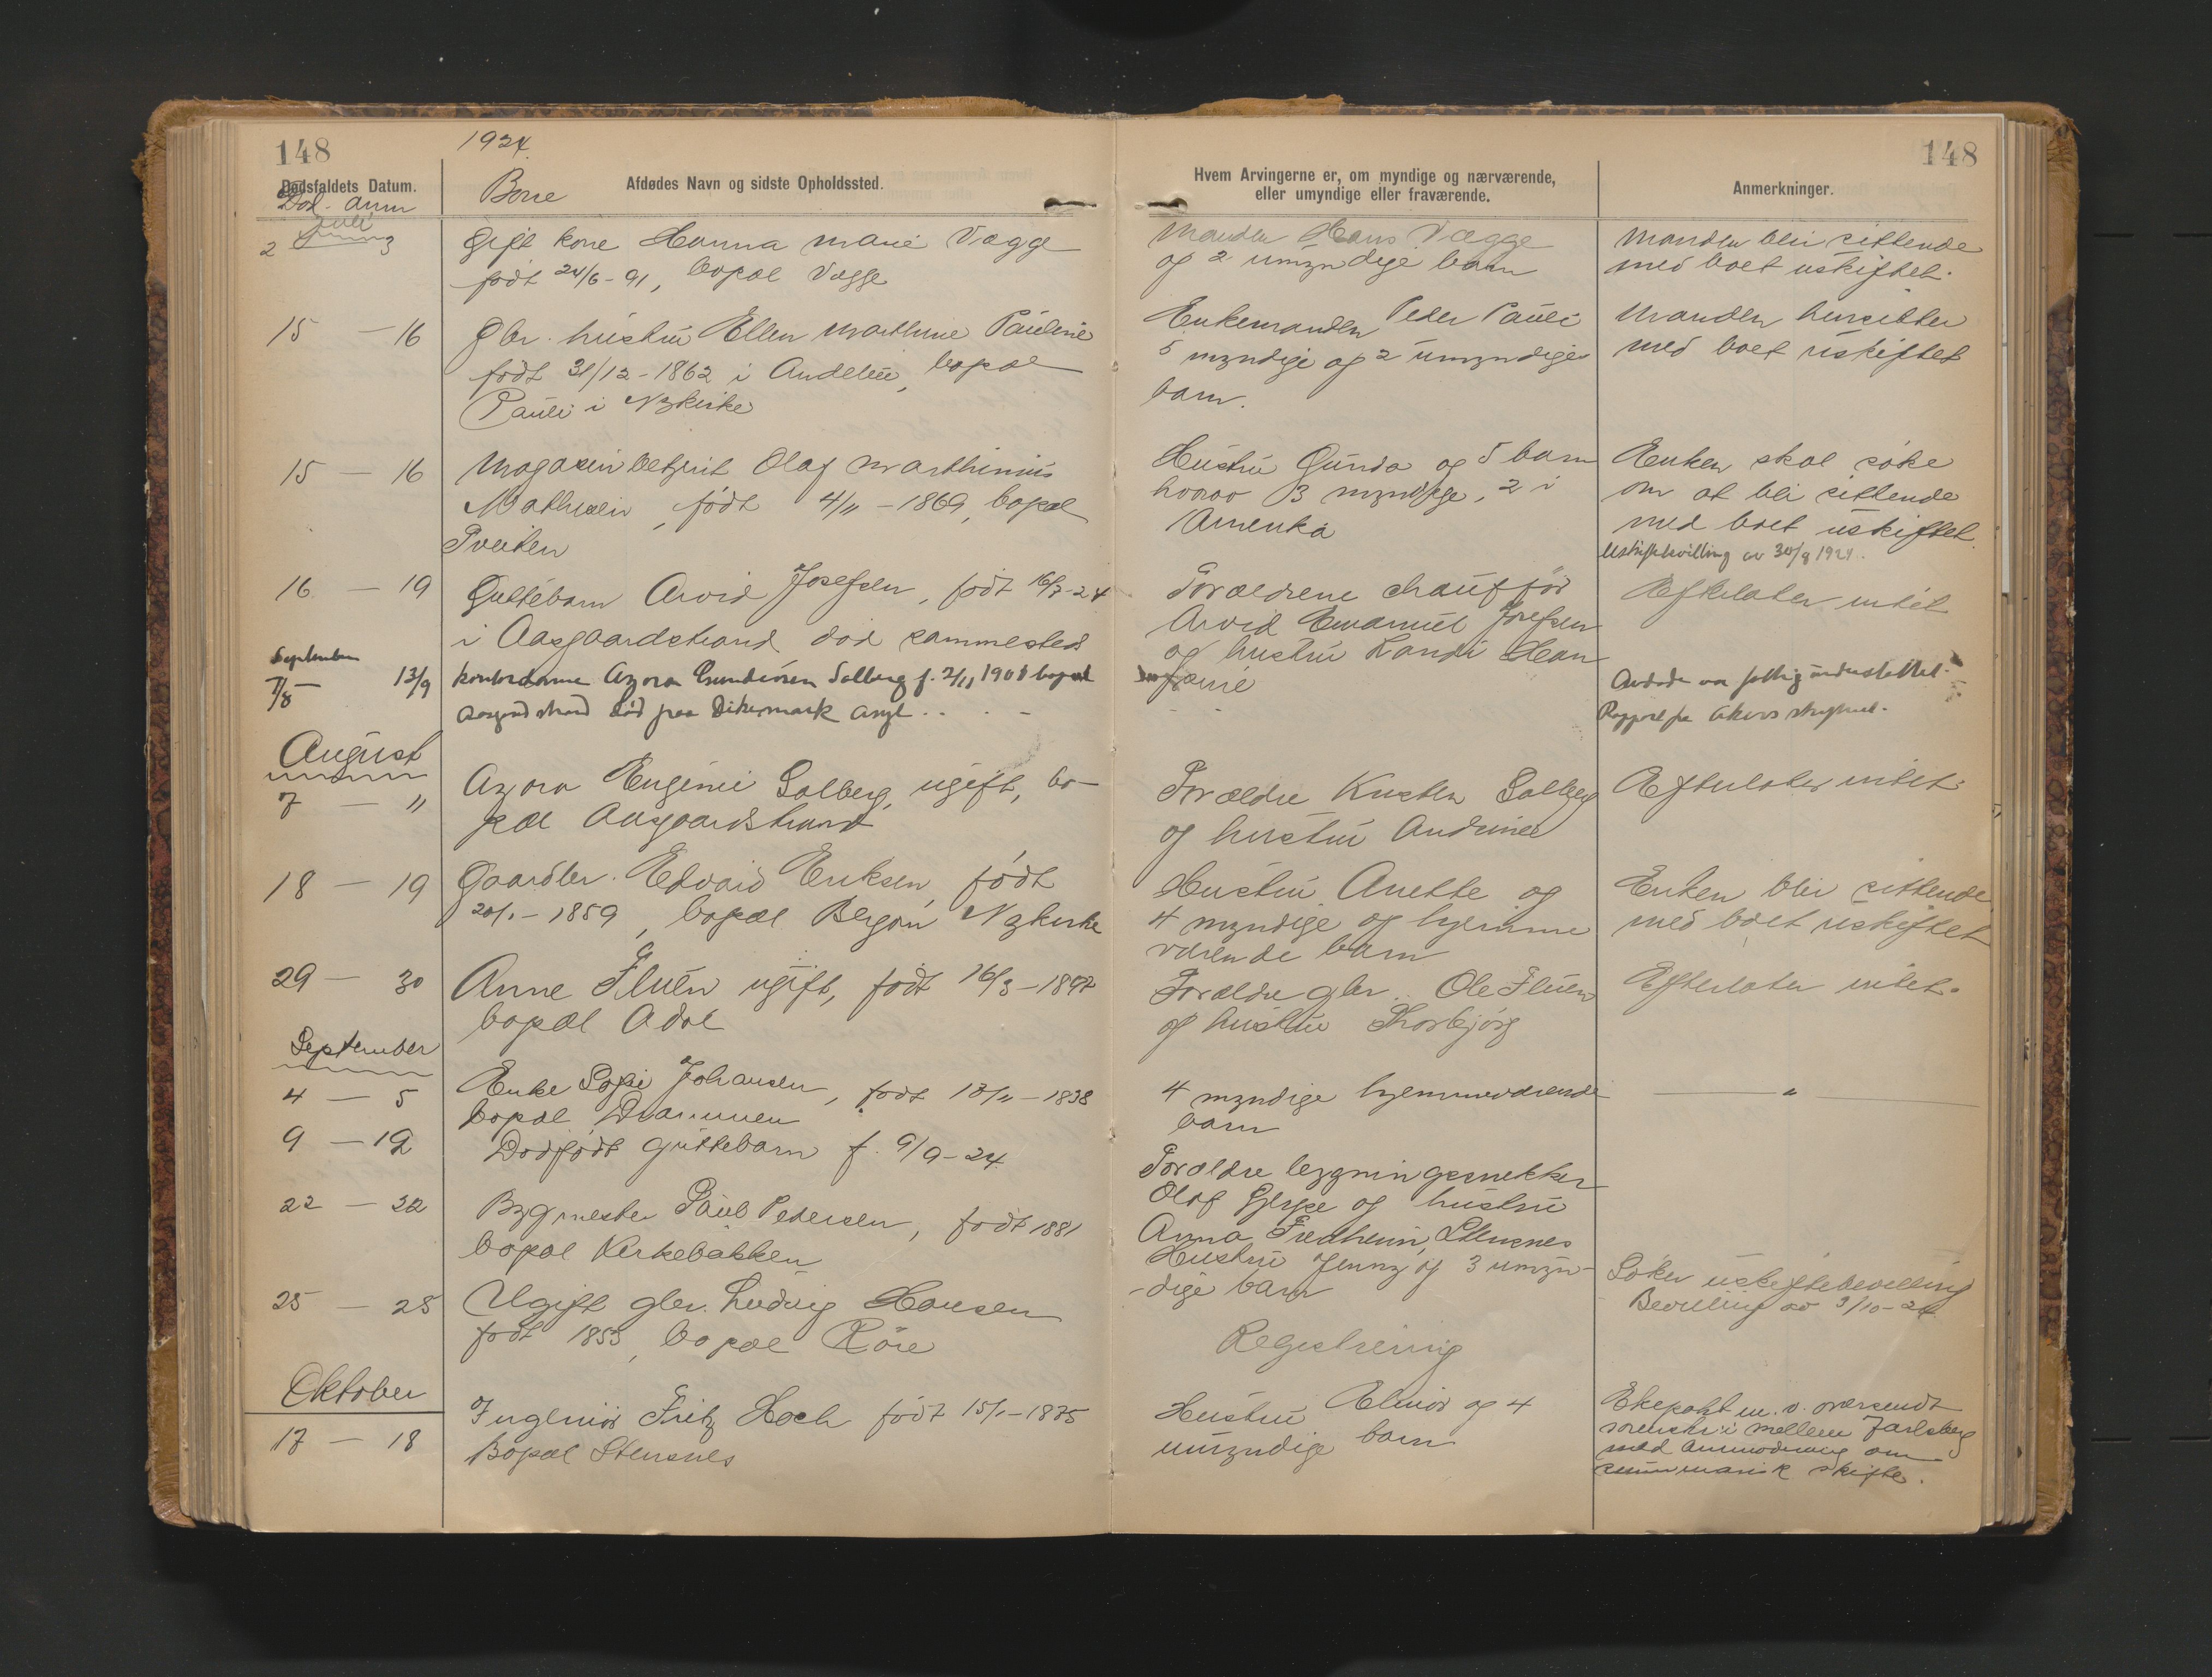 148
1924.
148
Dødsfaldets Datum.
Afdødes Navn og sidste Opholdssted.
Hvem Arvingerne er, om myndige og nærværende,
eller umyndige eller fraværende.
Anmerkninger.
Død. anm
Borre
Juli
2 3
Gift kone Hanna Marie Vægge
født 24/6-91, bopæl Vægge
Manden Hans Vægge
og 2 umyndige barn
Manden blir sittende
med boet uskiftet.
15 — 16
Gbr. hustru Ellen Marthine Pauline
født 31/12-1862 i Andebu, bopæl
Pauli i Nykirke
Enkemanden Peder Pauli
5 myndige og 2 umyndige
barn.
Manden hensitter
med boet uskiftet
15 — 16
Magasinbetjent Olaf Marthinius
Mathisen, født 4/11-1869, bopæl
Tveiten
Hustru Gunda og 5 barn
hvorav 3 myndige, 2 i
Amerika
Enken skal søke
om at bli sittende
med boet uskiftet.
Uskiftebevilling av 30/8 1924.
16 — 19
Guttebarn Arvid Josefsen, født 16/7-24
i Aasgaardstrand død sammesteds
Forældrene chauffør
Arvid Emanuel Josefsen
og hustru Landi Han
Efterlater intet
September
7/8 — 13/9
Kontordame Azora Solberg f. 2/11 1901 bopæl
Aasgaardstrand død paa Dikemark Asyl
Avdøde var fattigunderstøttet.
Rapport fra Akers
August
7 — "
Azora Eugenie Solberg, ugift, bo-
pæl Aasgaardstrand
Forældre Kristen Solberg
og hustru Andrine
Efterlater intet.
18 — 19
Gaardbr. Edvard Eriksen, født
20/1-1859, bopæl Bergan Nykirke
Hustru Anette og
4 myndige og hjemme
værende barn
Enken blir sittende
med boet uskiftet
29 — 30
Anne Fluen ugift, født 16/3-1897
bopæl Adal
Forældre gbr. Ole Fluen
og hustru Thorbjørg
Efterlater intet.
September
4 — 5
Enke Sofie Johansen, født 13/11-1838
bopæl Drammen
4 myndige hjemmeværende
barn
— " —
9 — 12
Dødfødt guttebarn f. 9/9-24
Forældre bygningssnekker
Olaf Gjerpe og hustru
Anna Fredheim, Stensnes
22 — 22
Bygmester Paul Pedersen, født 1881
bopæl Kirkebakken
Hustru Jenny og 3 umyn-
-dige barn
Søker uskiftebevilling
Bevilling av 3/10-24
25 — 25
Ugift gbr. Ludvig Hansen
født 1853, bopæl Røre
Registrering
Oktober
17 — 18
Ingeniør Fritz Hoch født 15/1-1875
Bopæl Stensnes
Hustru Elinor og 4
umyndige barn
Ektepakt m.v. oversendt
sorenskr. i mellem Jarlsberg
med anmodning om
summarisk skifte.